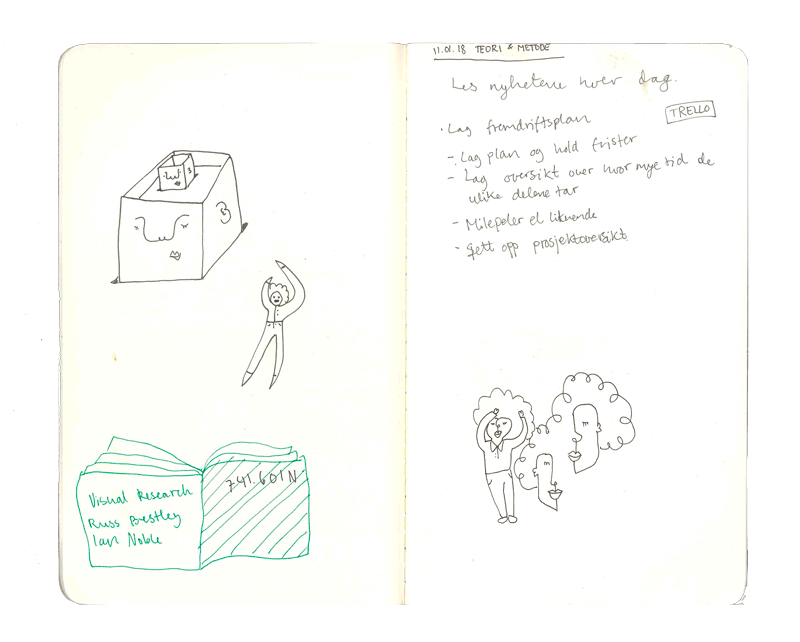 Visual Research
Russ Bestley
Ian Noble
741.601N
11.01.18 TEORI & METODE
Les nyhetene hver dag.
TRELLO
· Lag fremdriftsplan
- Lag plan og hold frister
- Lag oversikt over hvor mye tid de
ulike delene tar
- Milepæler el liknende
- Sett opp prosjektoversikt